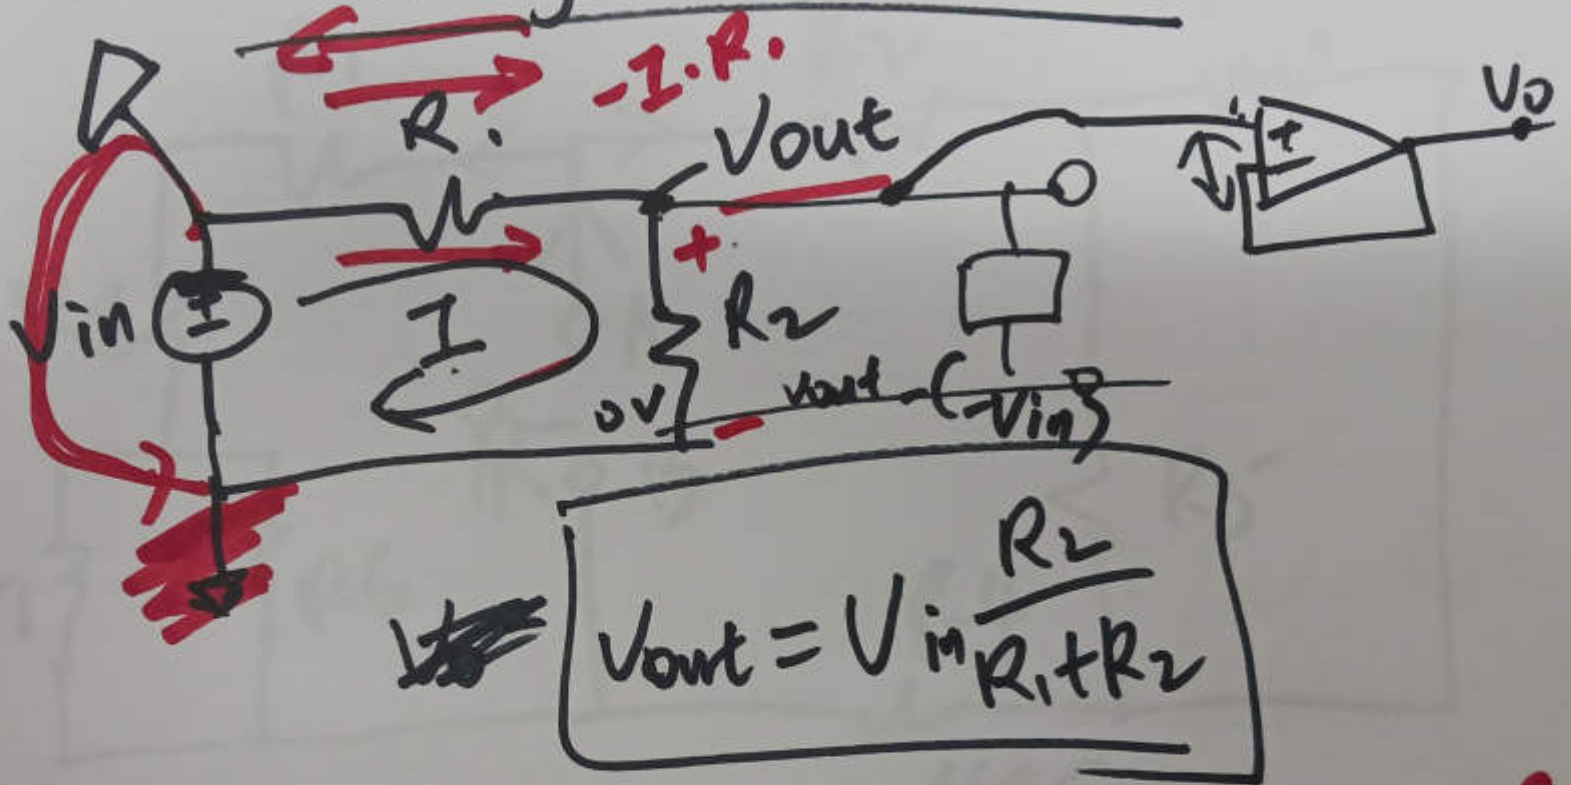 -I.R.
R.
Vout
Vo
+
Vin
I
+
R2
0V
-
vout
-Vin
Vout = Vin R2 / R1+R2